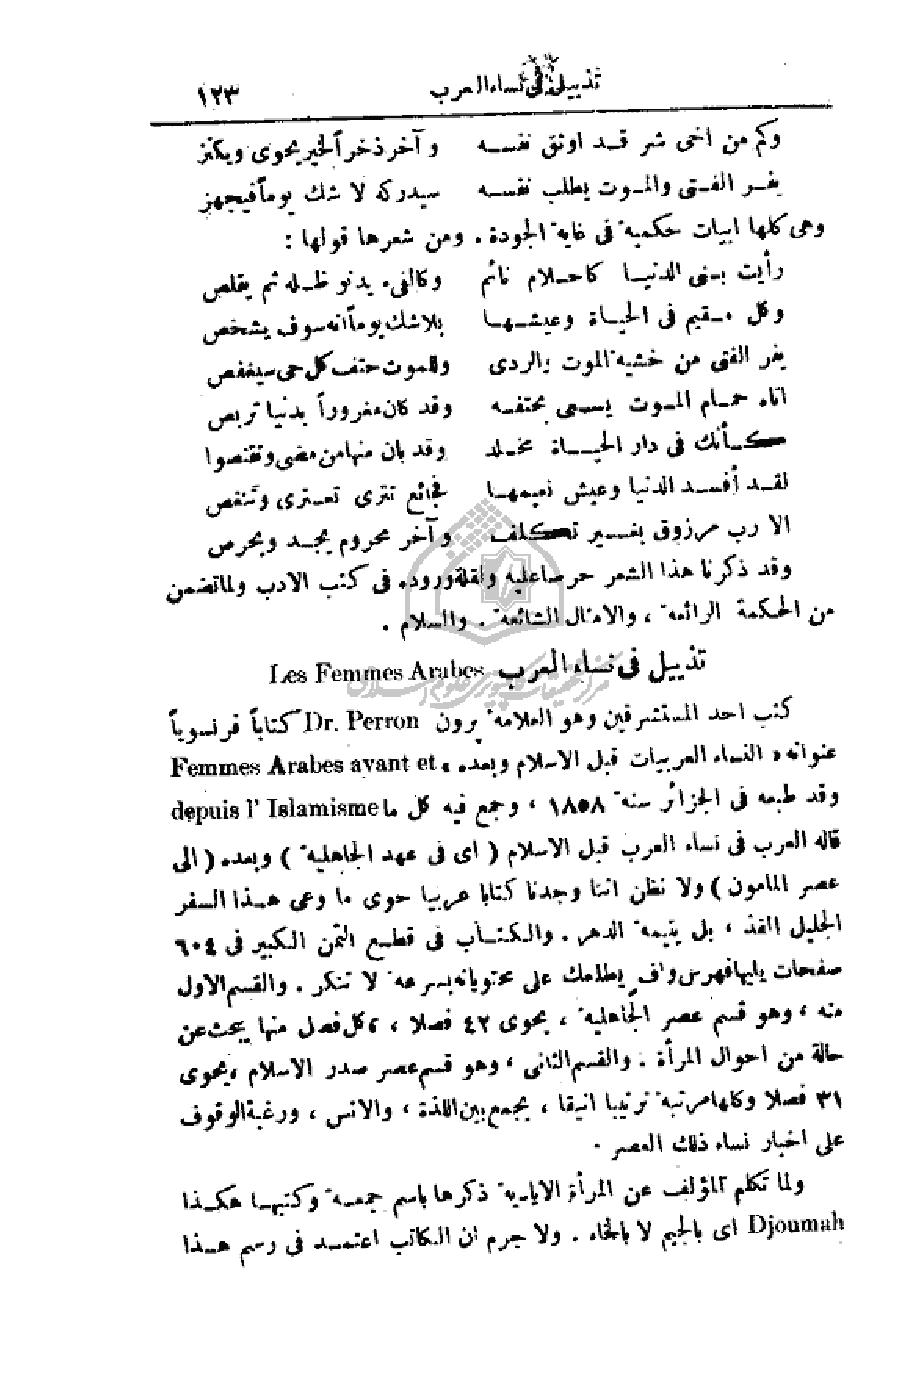 تذييل في نساء العرب ١٢٣
وكم من اخي شر قد اوثق نفسه وآخر ذخر الخير يحوى ويكنز
يفر الفتى والموت يطلب نفسه سيدركه لا شك يوماً فيجهز
وهي كلها ابيات حكمية في غاية الجودة . ومن شعرها قولها :
رأيت بني الدنيا كاحلام نائم وكالفيء يدنو ظله ثم يقلص
وكل مقيم في الحياة وعيشها بلا شك يوماً انه سوف يشخص
يفر الفتى من خشية الموت بالردى وللموت حتف كل حي سيغفص
اتاه حمام الموت يسعى بحتفه وقد كان مغروراً بدنيا تربص
كأنك في دار الحياة مخلد وقد بان منها من مضى وتقنصوا
لقد أفسد الدنيا وعيش نعيمها فجائع تترى تعترى وتنغص
الا رب مرزوق بغير تكلف وآخر محروم يجد ويحرص
وقد ذكرنا هذا الشعر حرصا عليه ولقلة وروده في كتب الادب ولما تضمن
من الحكمة الرائعة ، والامثال الشائعة . والسلام .
تذييل في نساء العرب Les Femmes Arabes
كتب احد المستشرقين وهو العلامة برون Dr. Perron كتاباً فرنسوياً
عنوانه « النساء العربيات قبل الاسلام وبعده » Femmes Arabes avant et
depuis l' Islamisme وقد طبعه في الجزائر سنة ١٨٥٨ ، وجمع فيه كل ما
قاله العرب في نساء العرب قبل الاسلام ( اى في عهد الجاهلية ) وبعده ( الى
عصر المامون ) ولا نظن اننا وجدنا كتابا عربيا حوى ما وعى هذا السفر
الجليل الفذ ، بل يتيمة الدهر . والكتاب في قطع الثمن الكبير في ٦٠٤
صفحات يليها فهرس وافٍ يطلعك على محتوياته بسرعة لا تنكر . والقسم الاول
منه ، وهو قسم عصر الجاهلية ، يحوى ٤٢ فصلا ، كل فصل منها يبحث عن
حالة من احوال المرأة . والقسم الثاني ، وهو قسم عصر صدر الاسلام ، يحوى
٣١ فصلا وكلها مرتبة ترتيبا انيقا ، يجمع بين اللذة ، والانس ، ورغبة الوقوف
على اخبار نساء ذلك العصر .
ولما تكلم المؤلف عن المرأة الايادية ذكرها باسم جمعة وكتبها هكذا
Djoumah اى بالجيم لا بالخاء . ولا جرم ان الكاتب اعتمد في رسم هذا